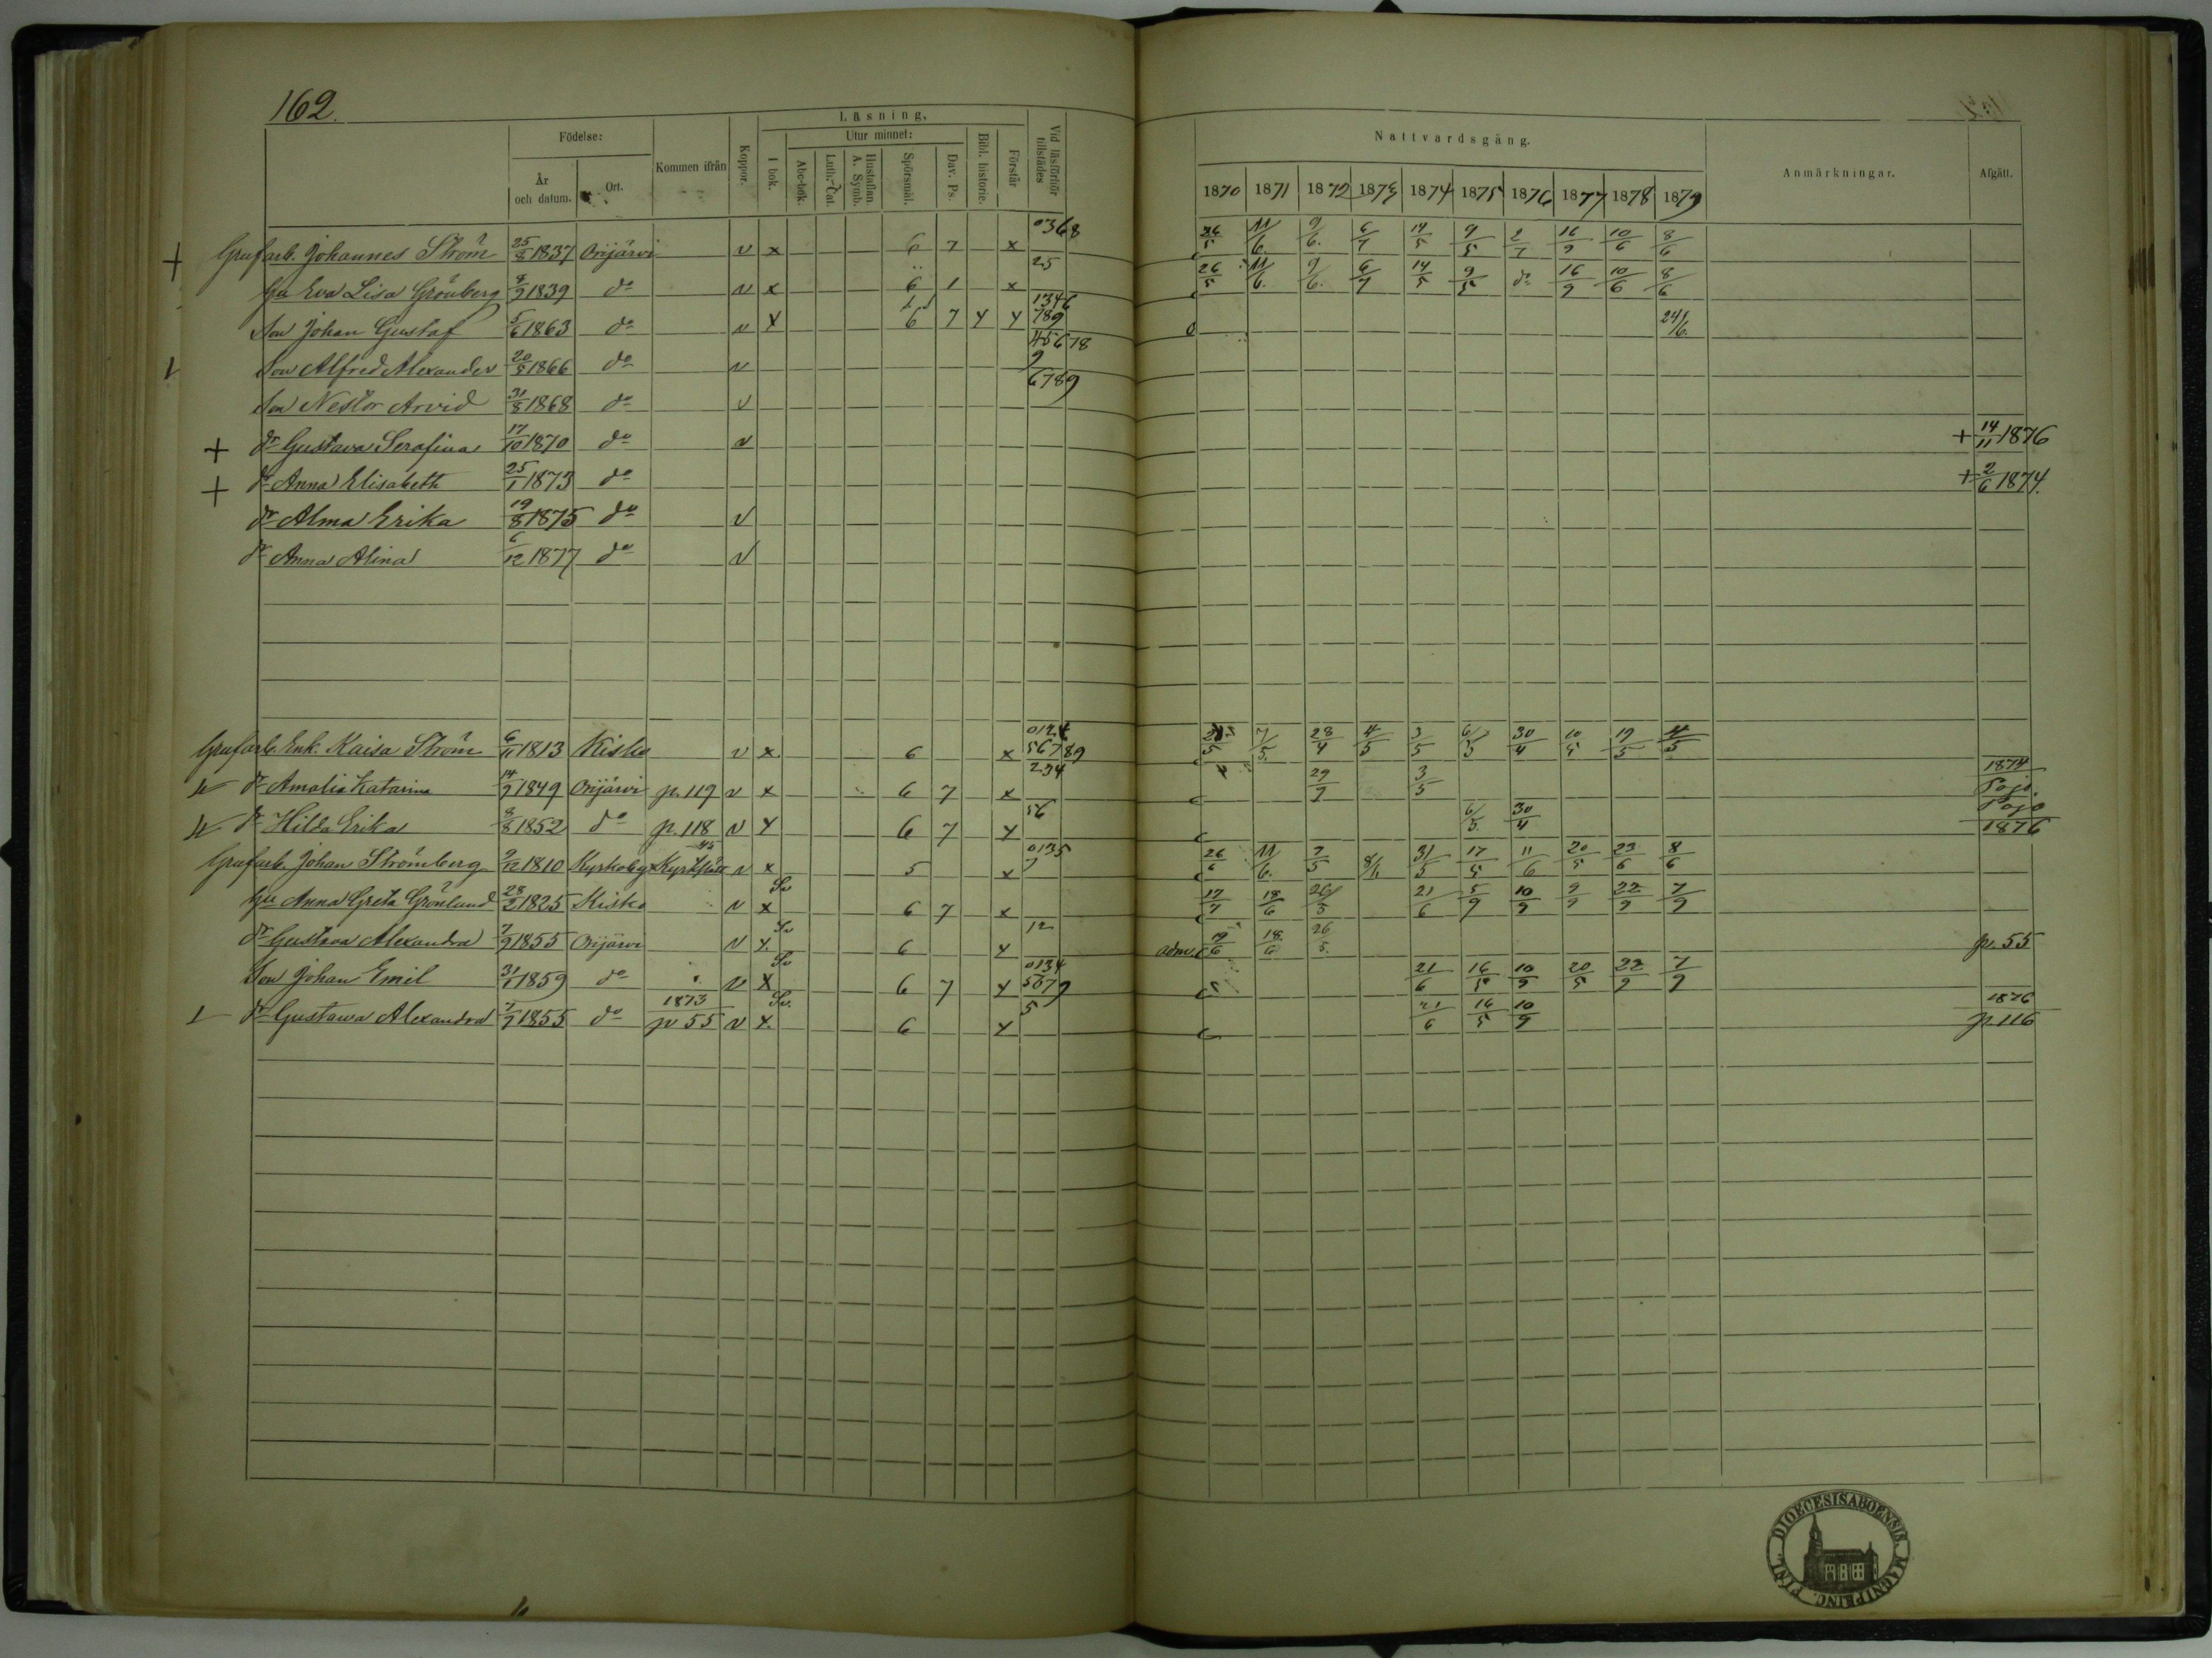 162.
Läsning.
Födelse:
Utur minnet:
År och datum.
Ort.
Kommen ifrån
Koppor.
I bok.
Abc-bok.
Luth:s Cat.
Hustaflan. A. Symb.
Spörsmål.
Dav. Ps.
Bibl. historie.
Förstår
Vid läsförhör tillstädes
Nattvardsgång.
Anmärkningar.
Afgått.
1870 1871 1872 1873 1874 1875 1876 1877 1878 1879
+ Grufarb. Johannes Ström 25/8 1837 Orijärvi v x 6 7 x 0368 26/5 11/6 9/6. 6/7 14/5 9/5 2/7 16/9 10/6 8/6
Hu Eva Lisa Grönberg 1839 do v x 6 1 x 25 26/5 11/6. 9/6. 6/7 14/5 9/5 do 16/9 10/6 8/6
Son Johan Gustaf 5/6 1863 do v x 6 7 x x 1346 789 24/6.
Son Alfred Alexander 20/5 1866 do v 45678 9
Son Nestor Arvid 31/8 1868 do v 6789
+ dr Gustava Serafina 17/10 1870 do v + 14/11 1876
+ dr Anna Elisabeth 25/1 1873 do + 2/6 1874.
dr Alma Erika 19/8 1875 do v
dr Anna Alina 6/12 1877 do v
Grufarb. Enk. Kaisa Ström 6/11 1813 Kisko v x 6 x 0124 56789 7/5. 28/4 4/5 3/5 6/5 30/4 10/5 19/5 4/5
dr Amalia Katarina 14/9 1849 Orijärvi p. 119 v x 6 7 x 234 29/9 3/5 1874 Pojo.
dr Hilda Erika 8/8 1852 do p. 118 v x 6 7 x 56 6/5. 30/4 Pojo 1876
Grufarb. Johan Strömberg 9/12 1810 v x 5 x 0135 26/5 11/6. 7/5 8/6 31/5 17/5 11/6 20/5 23/6 8/6
Hu Anna Greta Grönlund 28/2 1825 Kisko v x Sv 6 7 x 17/9 18/6 26/5 21/6 5/9 10/9 9/9 22/9 7/9
dr Gustava Alexandra 7/9 1855 Orijärvi v x. Sv 6 x 12 adm. 19/6 18/6 26/5. p. 55
Son Johan Emil 31/1 1859 do v x Sv 6 7 x 0134 5679 21/6 16/5 10/9 20/5 22/9 7/9
dr Gustawa Alexandra 7/9 1855 do 1873 p 55 v x. Sv. 6 x 5 21/6 16/5 10/9 1876 p. 116
DIOECESIS ABOENSIS. MAGNI PRINC. FINL.